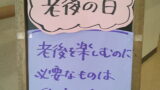 老後の日
老後を楽しむのに
必要なものは